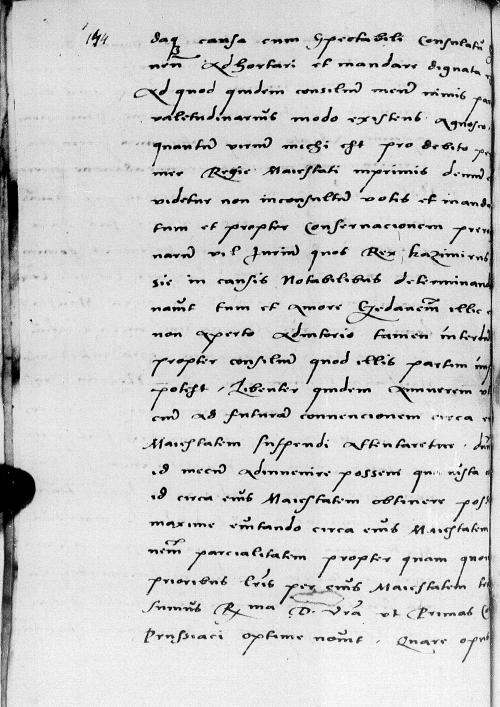 194
daq causa cum spectabili Consulatu
nem Adhortari et mandare dignata
Ad quod quidem consilium meum nimis
valetudinarius modo existens Agnosco
quantum virium michi est pro debito
mee Regie Maiestati inprimis
videtur non inconsultum votis et
tum et propter Conservacionem
narum vel Jurium quos Rex kazimirus
sic in causis Notabilibus determinand
navit tum et Amore Gedanen illic
non Aperto Aditorio tamen interdum
propter consilium quod illis partim
potest, Libenter quidem Annuerem
cum ad futuram convencionem circa
Maiestatem suspendi Attentaretur
id mecum Adinvenire possem que iusta
id circa eius Maiestatem obtinere
maxime evitando circa eius Maiestatem
nem parcialitatem propter quam
prioribus lris per eius Maiestatem
sumus Rma D. Vra ut Primas
Prussiaci optime novit, Quare